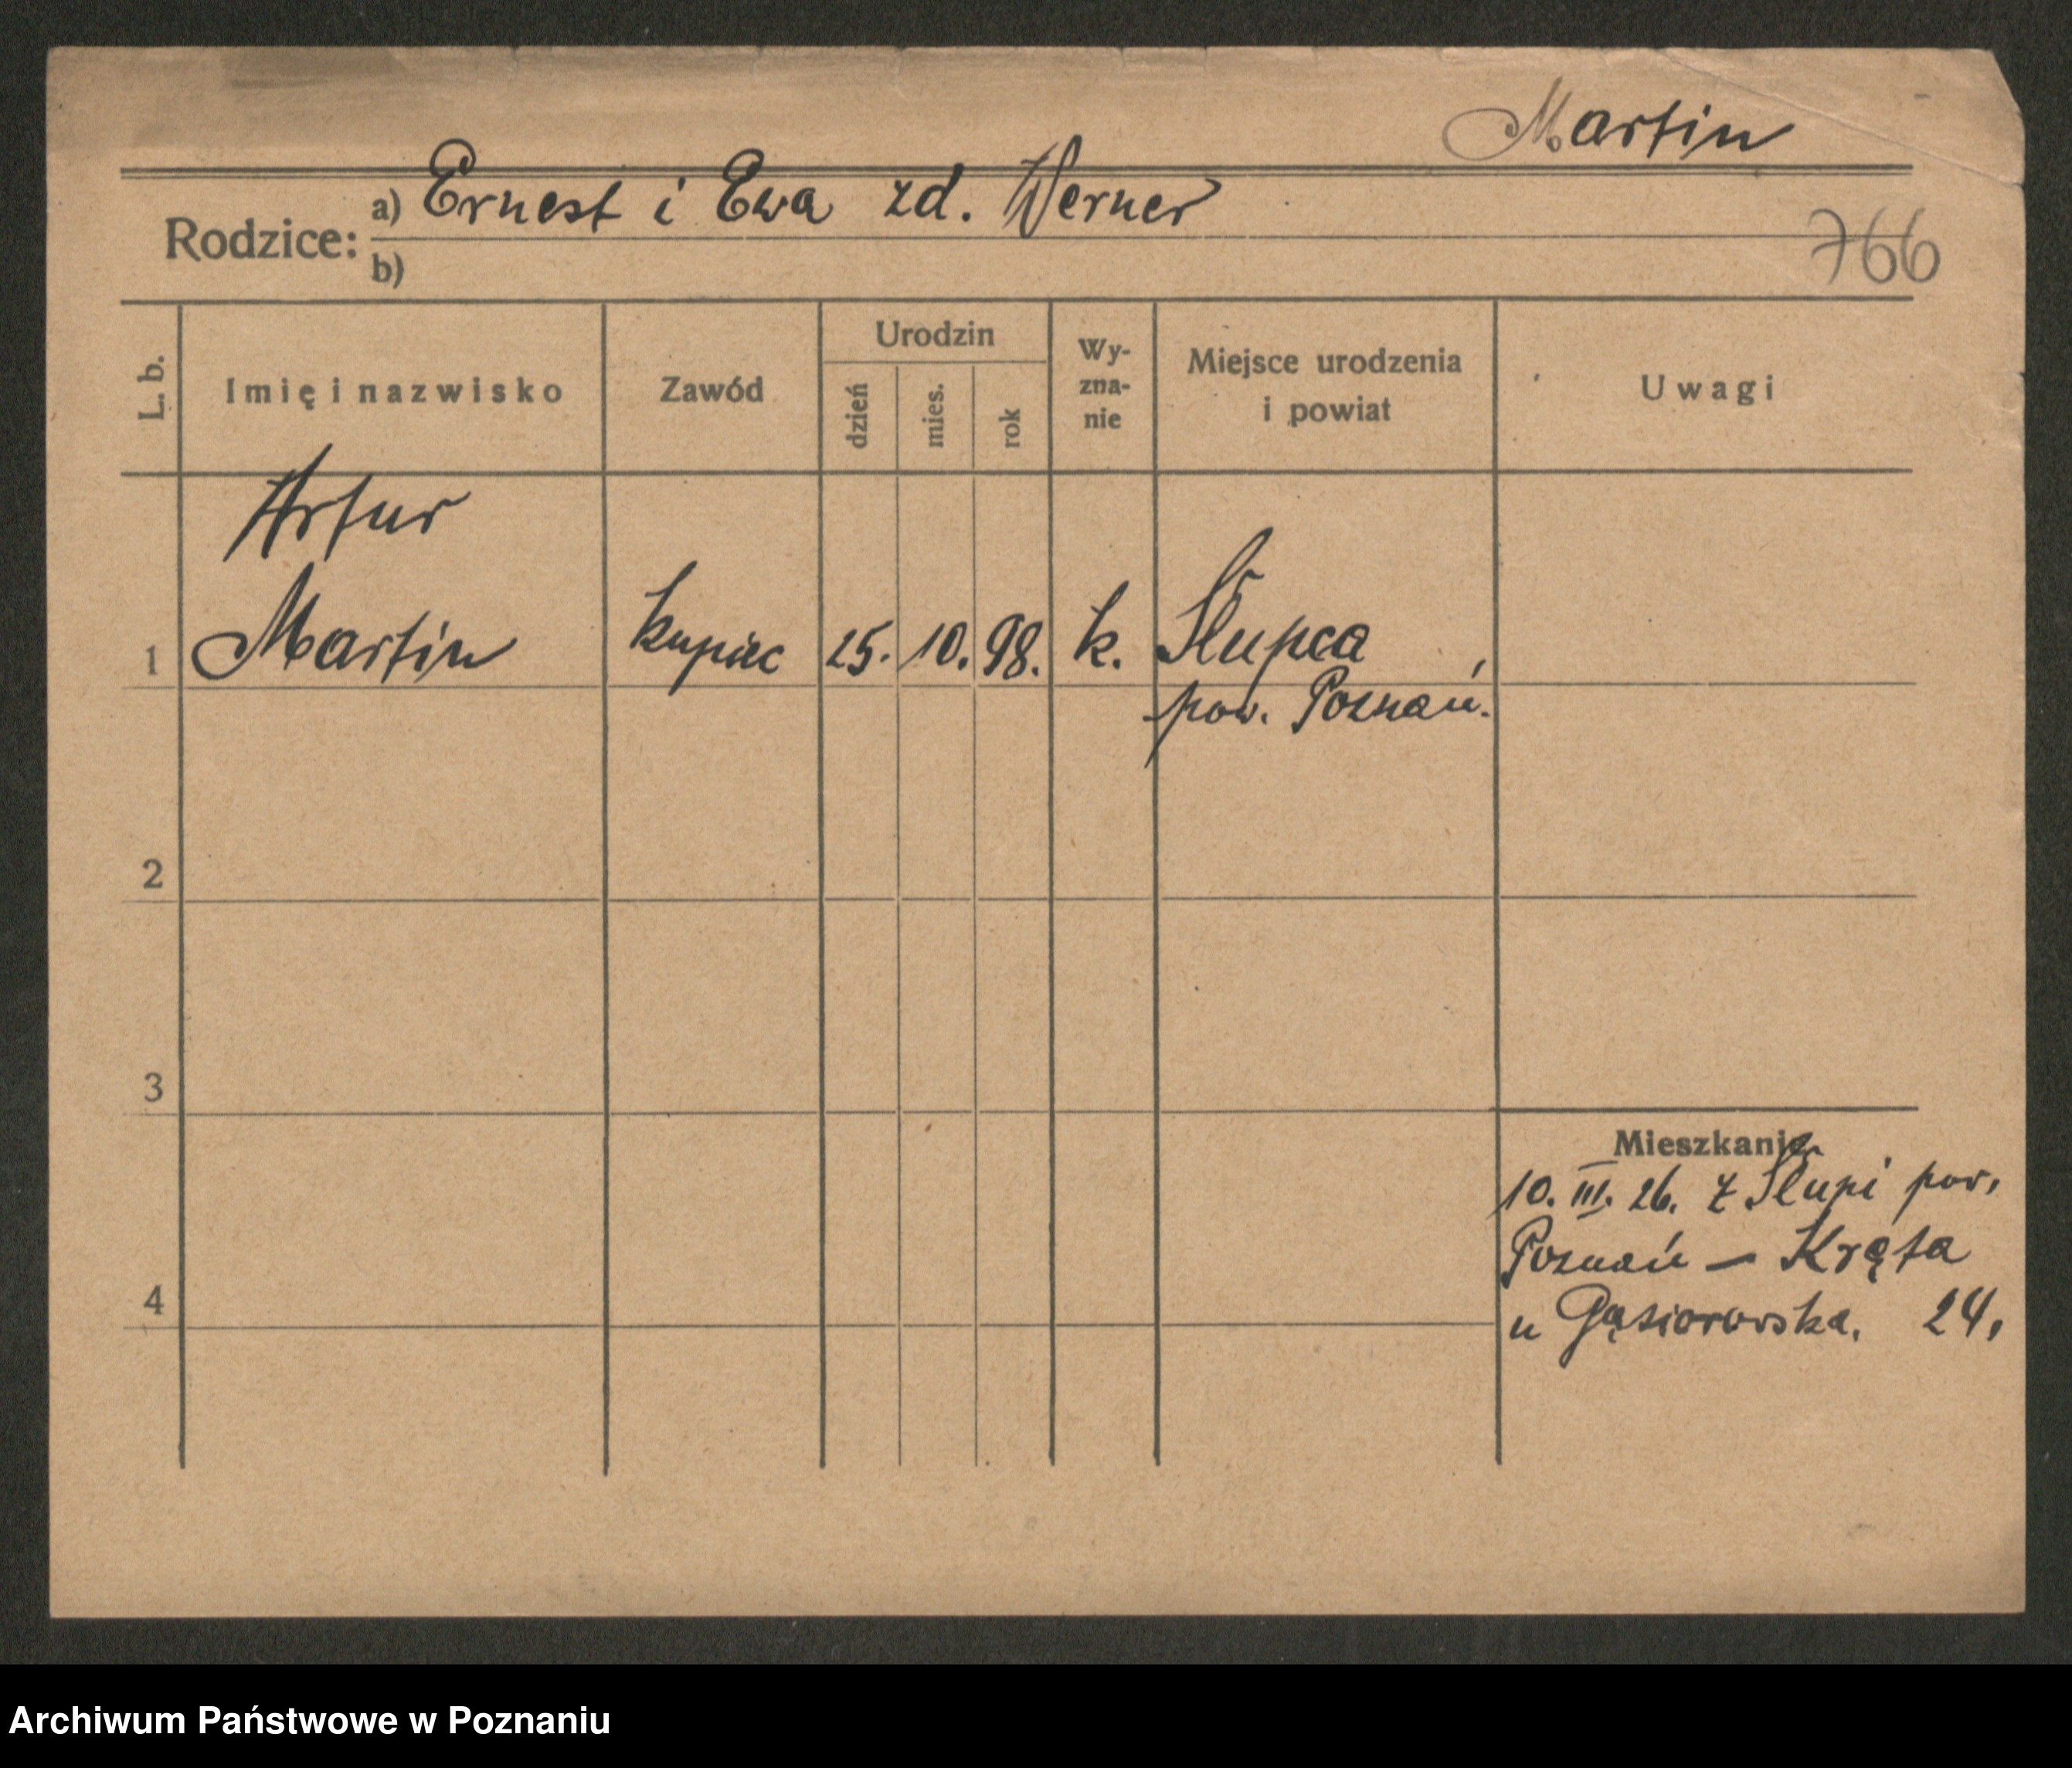 Martin
Rodzice: a) Ernest i Ewa zd. Werner
b)
766
L. b.
Imię i nazwisko
Zawód
Urodzin
dzień
mies.
rok
Wy-
zna-
nie
Miejsce urodzenia
i powiat
Uwagi
Artur
1 Martin kupiec 25. 10. 98. k. Słupca
pow. Poznań.
2
3
4
Mieszkanie
10. III. 26. z Słupi pow.
Poznań — Kręta
u Gąsiorowska. 24.
Archiwum Państwowe w Poznaniu